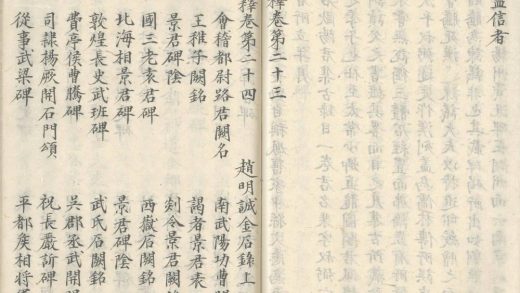 信者
釋卷第二十三
釋卷第二十四 趙明誠金石錄上
會稽都尉路君闕名 南武陽功曹
王稚子闕銘 謁者景君表
景君碑陰 郯令景君闕銘
國三老袁君碑 西嶽石闕銘
北海相景君碑 景君碑陰
敦煌長史武班碑 武氏石闕銘
費亭侯曹騰碑 吳郡丞武開明
司隸楊厥開石門頌 祝長嚴訢碑
從事武梁碑 平都侯相蔣